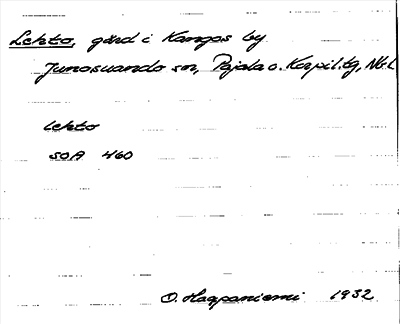 Lehto, gård i Kangos by
Junosuando sn, Pajala o. Korpil. tg, Nb. L
lehto
SOA 460
O. Haapaniemi 1932